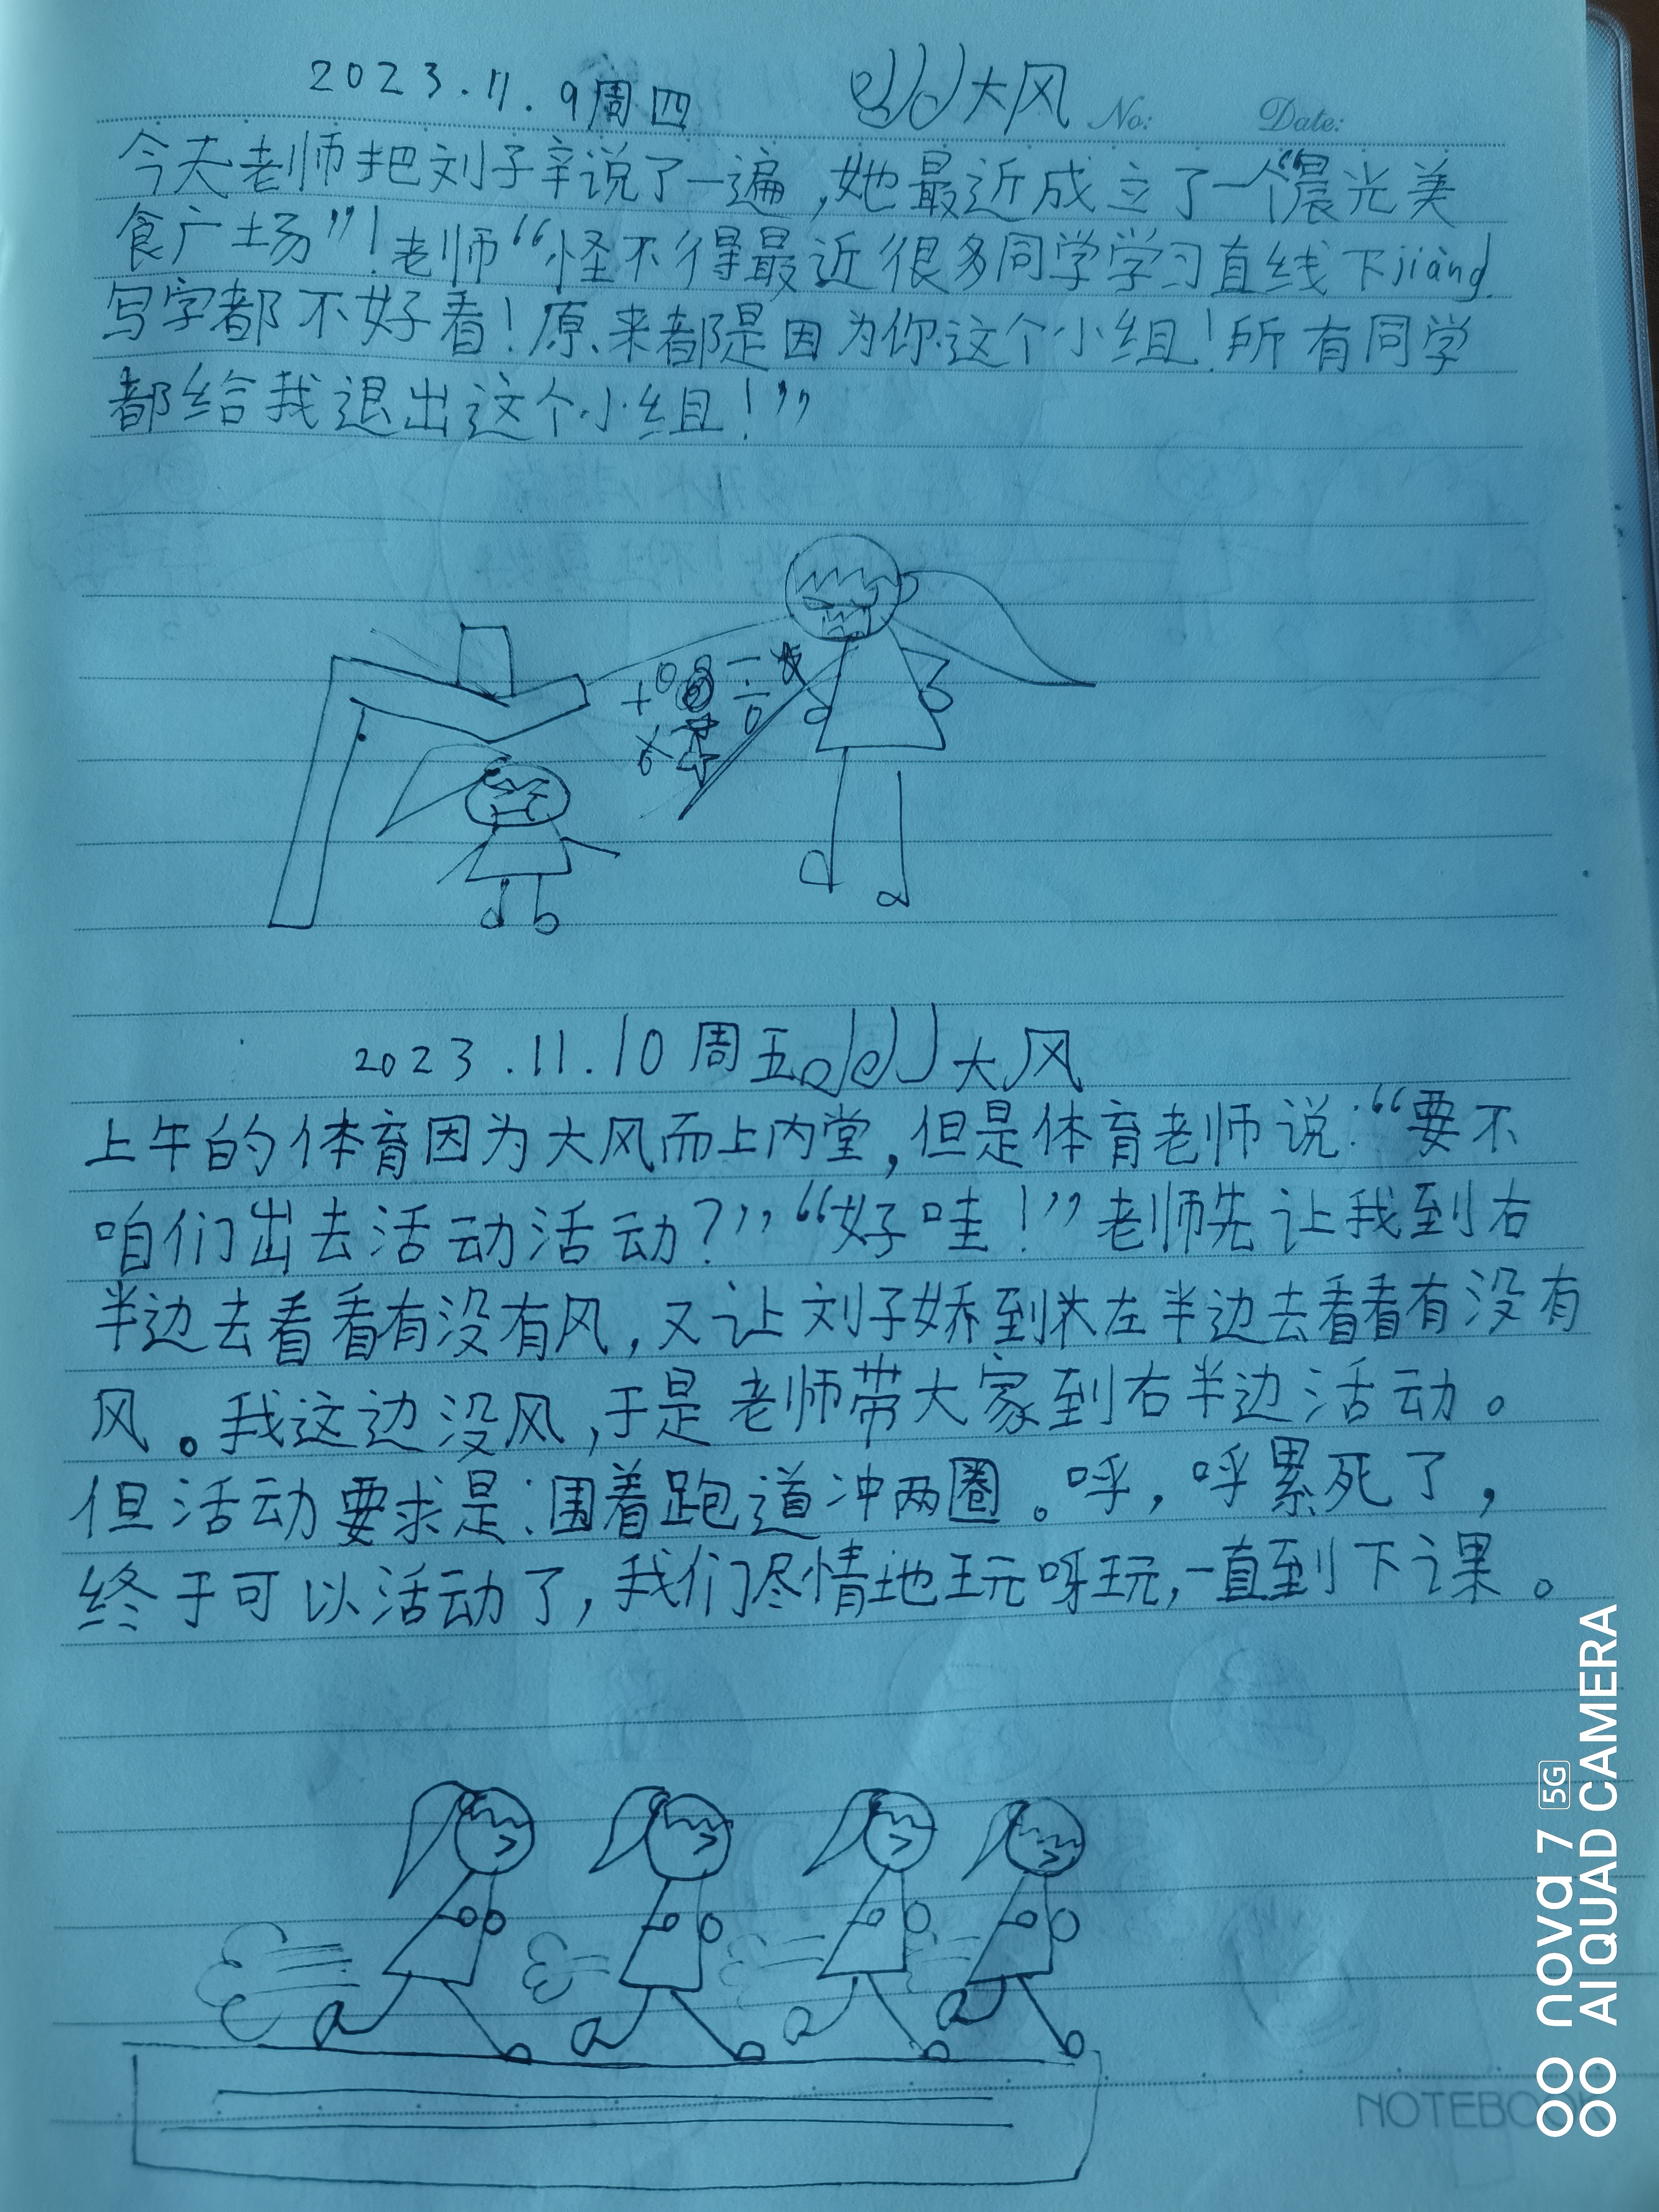 2023.11.9周四 大风 No: Date:
今天老师把刘子辛说了一遍,她最近成立了一个“晨光美
食广场”!老师“怪不得最近很多同学学习直线下jiàng.
写字都不好看!原来都是因为你这个小组!所有同学
都给我退出这个小组!”
2023.11.10周五 大风
上午的体育因为大风而上内堂,但是体育老师说:“要不
咱们出去活动活动?”“好哇!”老师先让我到右
半边去看看有没有风,又让刘子娇到左半边去看看有没有
风。我这边没风,于是老师带大家到右半边活动。
但活动要求是:围着跑道冲两圈。呼,呼累死了,
终于可以活动了,我们尽情地玩呀玩,一直到下课。
NOTEBOOK
nova 7 5G
AI QUAD CAMERA